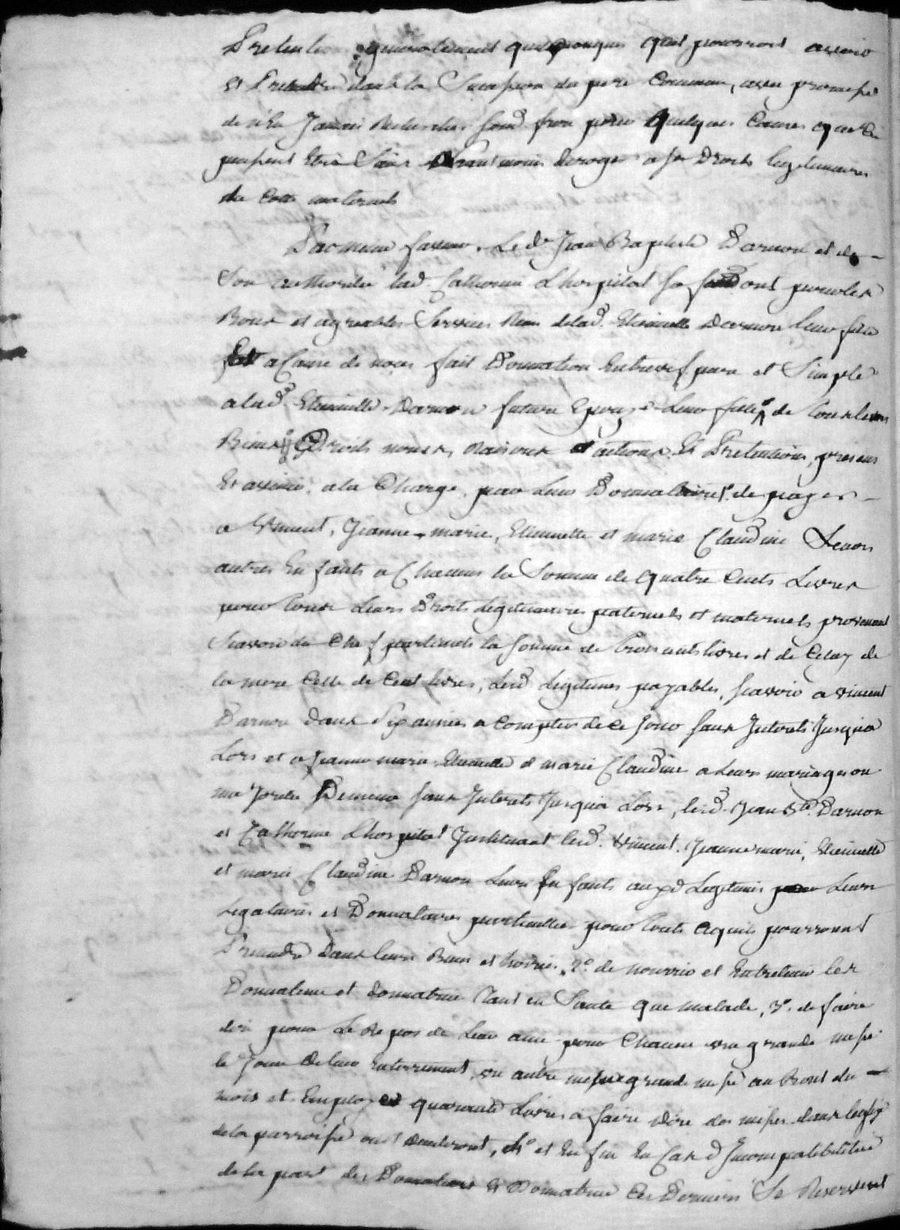 Pretentions generalement quelconques quil pourront avoir
et Pretendre dans la Succession du pere Commun, avec promesse
de n'En Jamais Rechercher pour quelques Causes que Ce
puissent Etre Sans moins deroger a ses Droits legitimaires
du Cotté maternel
Pareillement Led. Jean Baptiste Darnon et de
Son authorité lad. Catherine Lhospital pour les
Bons et agreables Services de lad. Etiennette Darnon leur fille
a Cause de noces fait Donnation Entrevif pure et Simple
a lad.e Etiennette Darnon future Epouse Leur fille de tous leurs
Biens Droits noms Raisons et actions Et Pretentions, presens
Et avenir, a la Charge, par Leur Donnataire 1.° de payer
a Vincent, Jeanne-marie, Etiennette et marie Claudine Leurs
autres Enfants a Chacuns la Somme de quatre Cents Livres
pour tous Leurs Droits Legitimaires paternels et maternels provenant
Scavoir du Chef paternel la somme de trois cents livres et de Celuy de
la mere Celle de Cent livres, Lesd. Legitimes payables, scavoir a Vincent
Darnon dans Six années a Compter de Ce Jour sans Interets Jusqu'a
Lors et a Jeanne marie Etiennette et marie Claudine a Leurs mariage ou
majorité sans Interets Jusqu'a Lors, lesd. Jean B.te Darnon
et Catherine Lhospital Instituant lesd. Vincent, Jeanne marie, Etiennette
et marie Claudine Darnon Leurs Enfants auxd. Legitimes pour Leurs
Legataires et Donnataires particulier pour tout Cequils pourroient
Pretendre Dans leurs Biens et hoirie, 2.° de nourrir et Entretenir les
Donnateur et donnatrice Tant en Santé que malade, 3.° de faire
dire pour Le Repos de Leur ame pour Chacun une grande messe
le Jour de leur Enterrement, un autre grande messe au Bout du
mois et Employer quarante Livres a faire dire des messes dans leglise
de la parroisse ou ils decederont, 4.° et Enfin En Cas d'Incompatibilité
de la part des Donnateur et Donnatrice Ces Derniers Se Reservent